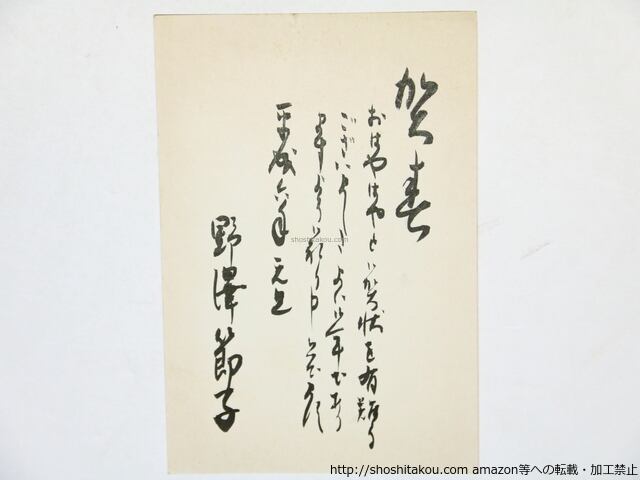 賀春
おはやばやと御賀状を有難う
ございました よい年であり
ますよう お祈り申し上げます
平成六年 元旦
野澤節子
shoshitakou.com
http://shoshitakou.com amazon等への転載・加工禁止